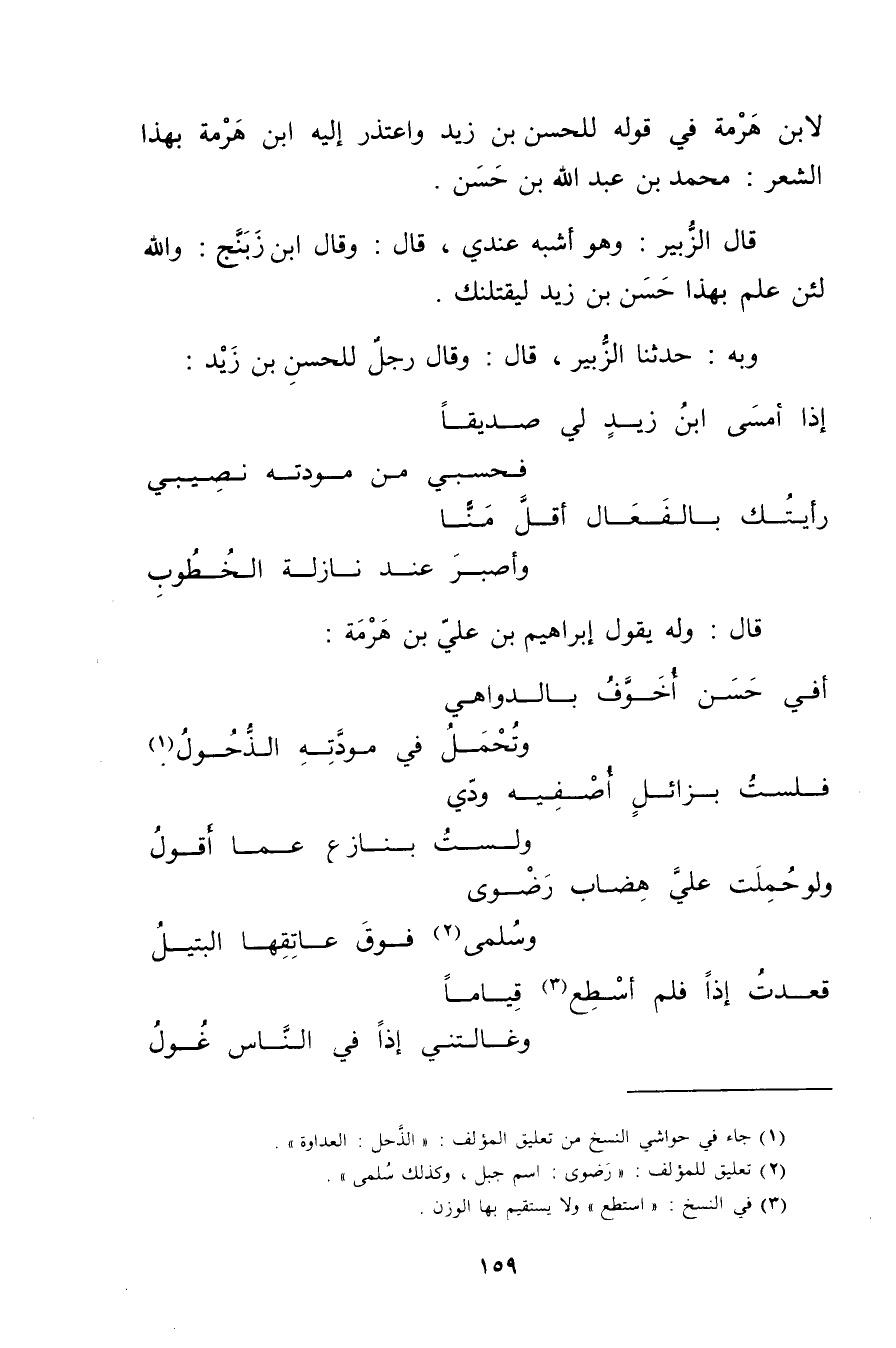 لابن هَرْمة في قوله للحسن بن زيد واعتذر إليه ابن هَرْمة بهذا
الشعر : محمد بن عبد الله بن حَسَن .
قال الزُّبير : وهو أشبه عندي ، قال : وقال ابن زَبَنَّج : والله
لئن علم بهذا حَسَن بن زيد ليقتلنك .
وبه : حدثنا الزُّبير ، قال : وقال رجلٌ للحسنِ بن زَيْد :
إذا أمسَى ابنُ زيـدٍ لي صديقاً
فحسبي من مودته نصِيبي
رأيتُك بالفَعَال أقلَّ مَنًّا
وأصبرَ عند نازلة الخُطُوبِ
قال : وله يقول إبراهيم بن عليّ بن هَرْمَة :
أفي حَسَن أُخَوَّفُ بالدواهي
وتُحْمَلُ في مودَّتِهِ الذُّحُولُ(١)
فلستُ بزائلٍ أُصْفِيه ودّي
ولستُ بنازع عما أَقولُ
ولو حُمِلَت عليَّ هِضاب رَضْوى
وسُلمى(٢) فوقَ عاتِقِها البتيلُ
قعدتُ إذاً فلم أسْطِع(٣) قِياماً
وغالتني إذاً في النَّاس غُولُ
(١) جاء في حواشي النسخ من تعليق المؤلف : « الذَّحل : العداوة » .
(٢) تعليق للمؤلف : « رَضوى : اسم جبل ، وكذلك سُلمى » .
(٣) في النسخ : « استطع » ولا يستقيم بها الوزن .
١٥٩